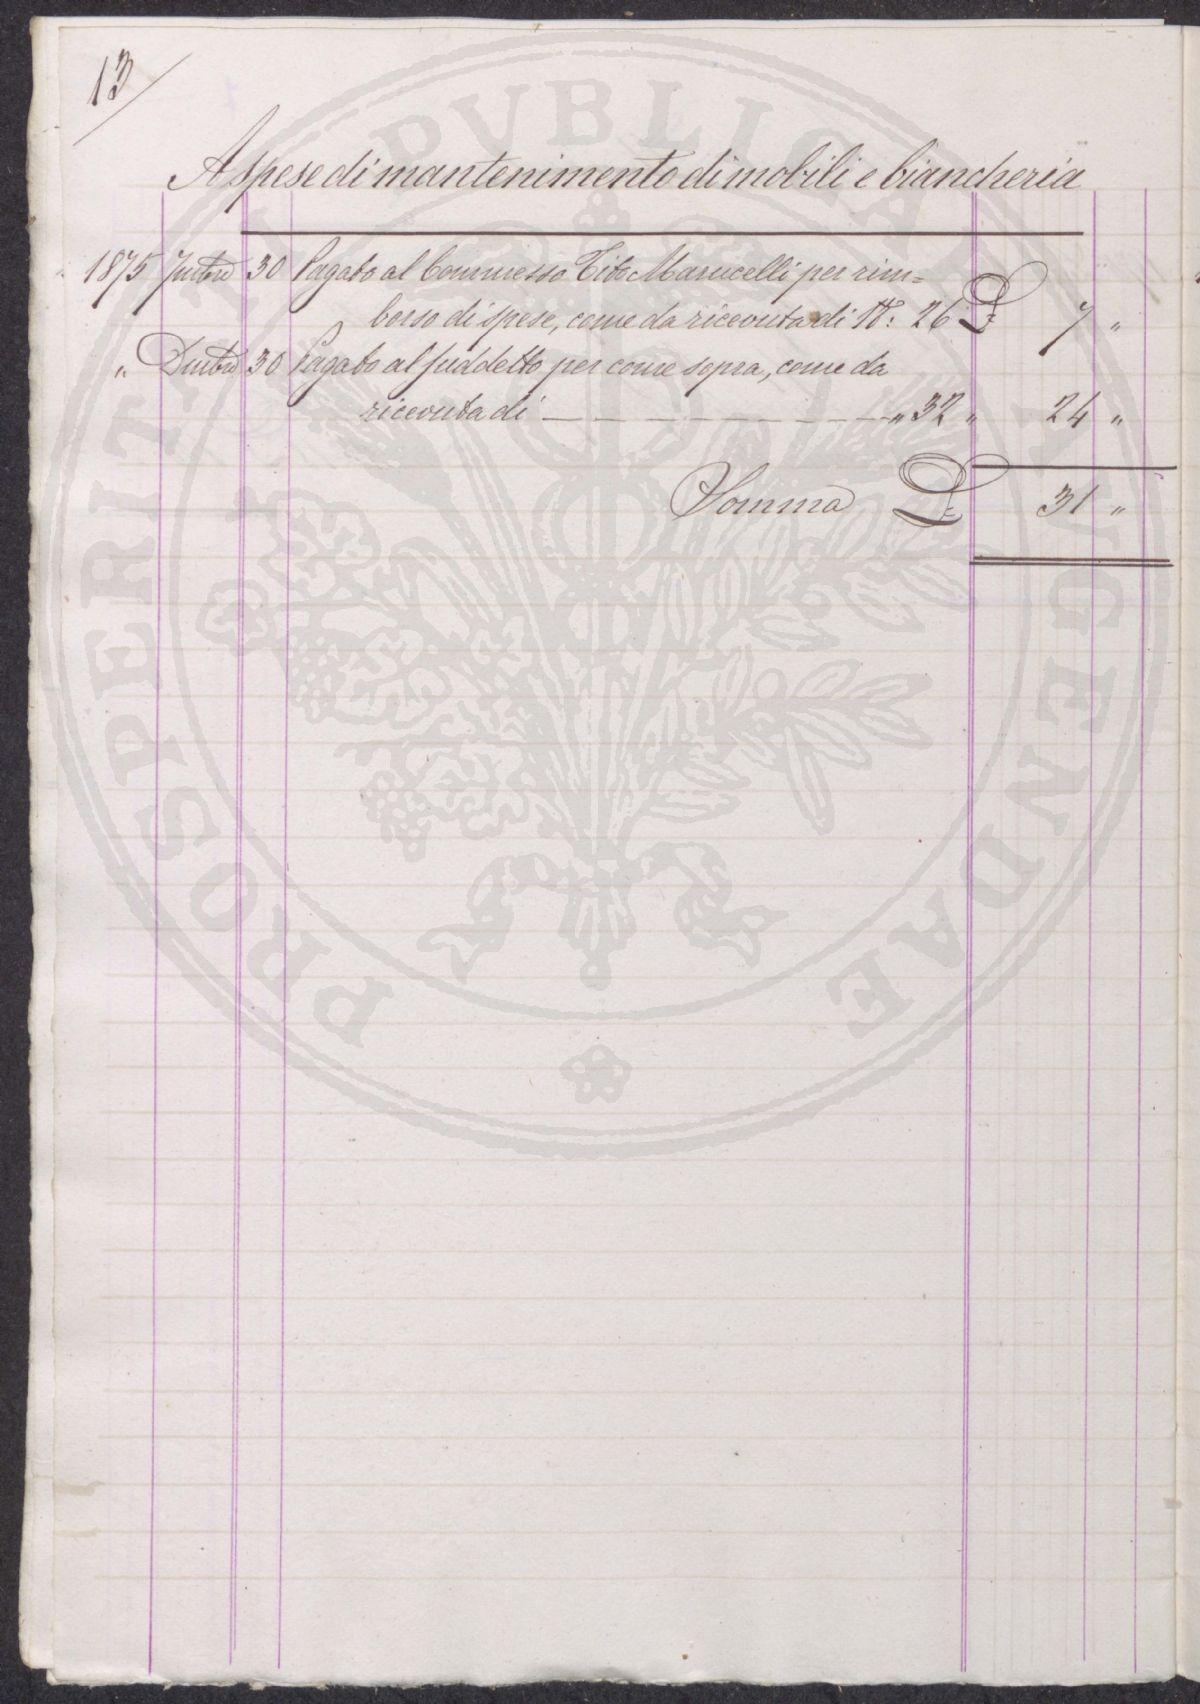 13
A spese di mantenimento di mobili e biancheria
1875 30 Pagato al Commesso Tito Marucelli per rim=
borso di spese, come da ricevuta di N: 26 L= 7 "
" 30 Pagato al suddetto per come sopra, come da
ricevuta di — — — — — — — " 32 " 24 "
Somma L= 31 "
PROSPERITATI PVBLICAE AVGENDAE